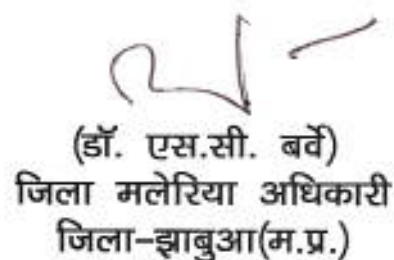 (डॉ. एस.सी. बर्वे)
जिला मलेरिया अधिकारी
जिला-झाबुआ(म.प्र.)